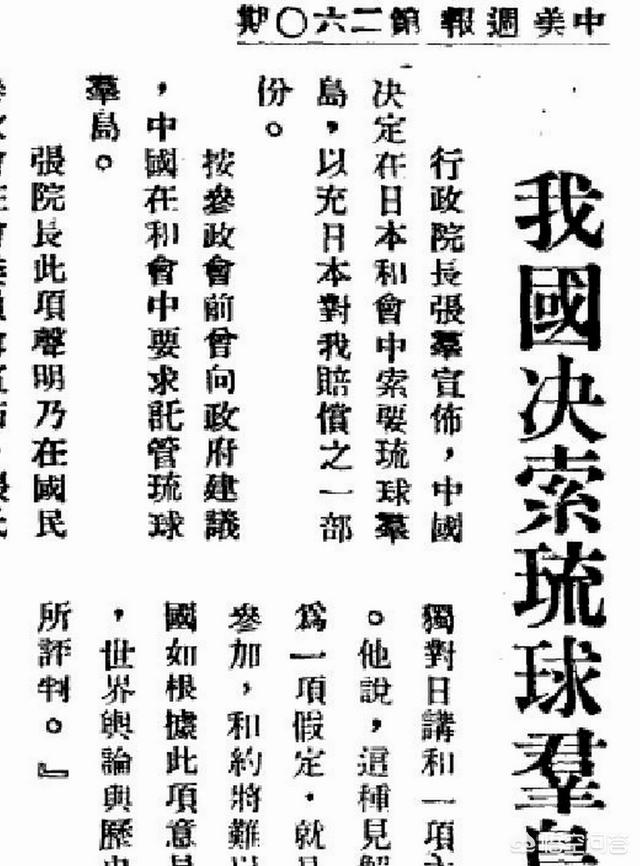 中美週報 第二六〇期
我國决索琉球羣島
行政院長張羣宣佈，中國
决定在日本和會中索要琉球羣
島，以充日本對我賠償之一部
份。
按參政會前曾向政府建議
，中國在和會中要求託管琉球
羣島。
張院長此項聲明乃在國民
獨對日講和一項
。他說，這種見解
爲一項假定．就是
參加，和約將難以
國如根據此項意見
，世界輿論與歷史
所評判。』
悟空问答